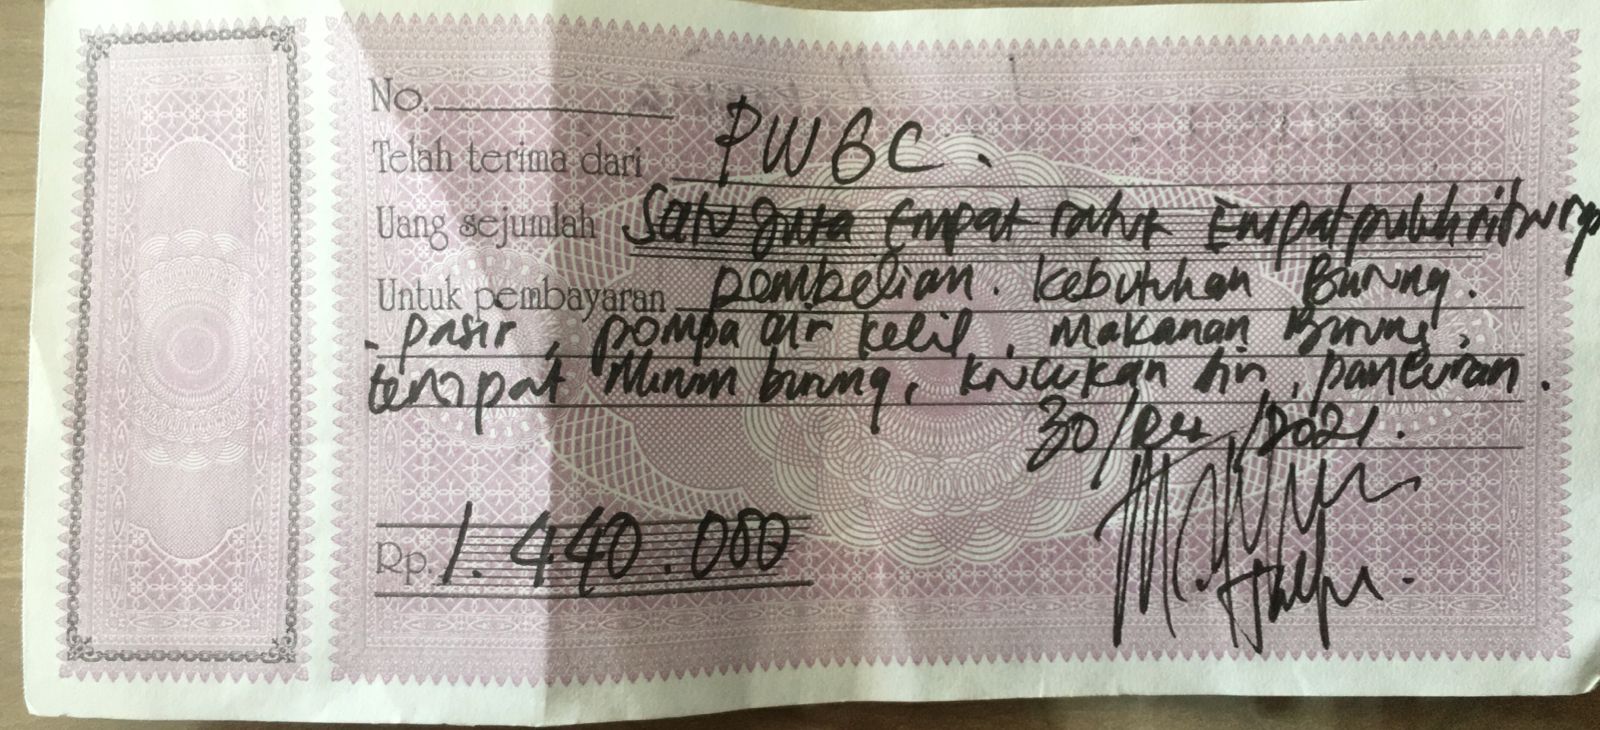 No.
Telah terima dari PWBC.
Uang sejumlah Satu juta Empat ratus Empat puluh ribu rp
Untuk pembayaran pembelian. kebutuhan Burung.
- pasir, pompa air kecil, Makanan Burung,
tempat Minum burung, krucukan air, pancuran.
30/Des/2021.
Rp. 1.440.000